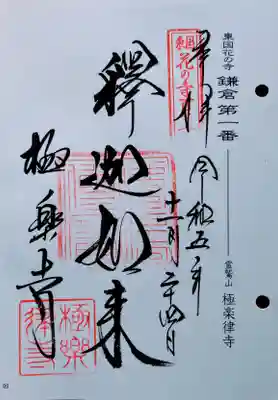 東国花の寺 鎌倉第一番
霊鷲山 極楽律寺
奉拝 令和五年
十一月二十四日
釋迦如来
極楽寺
花の寺
極楽律寺